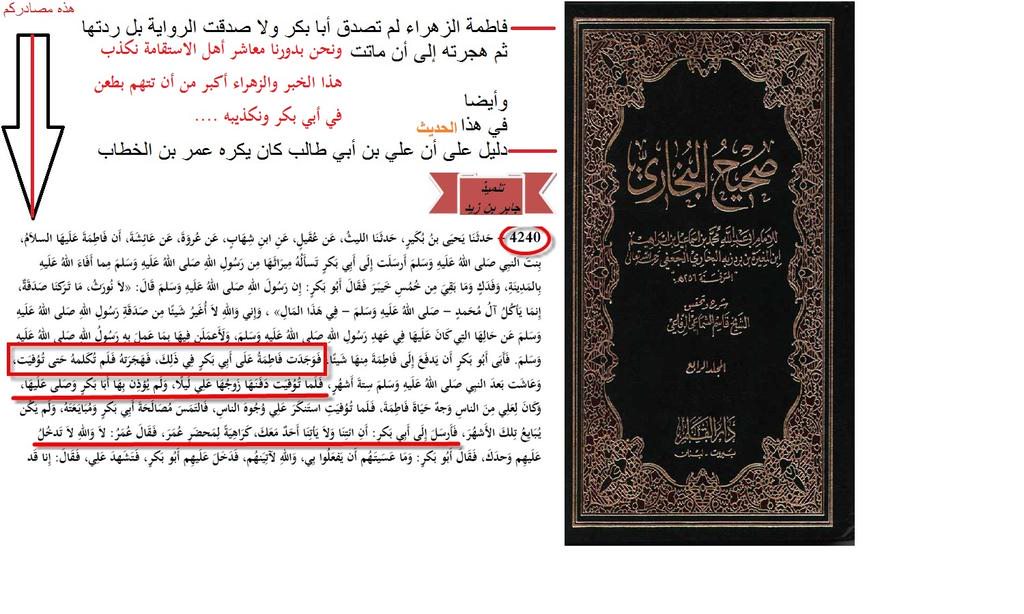 هذه مصادركم
فاطمة الزهراء لم تصدق أبا بكر ولا صدقت الرواية بل ردتها
ثم هجرته إلى أن ماتت ونحن بدورنا معاشر أهل الاستقامة نكذب
هذا الخبر والزهراء أكبر من أن تتهم بطعن
في أبي بكر ونكذيبه ....
وأيضا
في هذا الحديث
دليل على أن علي بن أبي طالب كان يكره عمر بن الخطاب
تلميذ
جابر بن زيد
4240 - حَدثَنَا يَحيَى بنُ بُكَيرٍ، حَدثَنَا الليثُ، عَن عُقَيلٍ، عَنِ ابنِ شِهَابٍ، عَن عُروَةَ، عَن عَائِشَةَ، أَن فَاطِمَةَ عَلَيهَا السلاَمُ،
بِنتَ النبِي صَلى اللهُ عَلَيهِ وَسَلمَ أَرسَلَت إِلَى أَبِي بَكرٍ تَسأَلُهُ مِيرَاثَهَا مِن رَسُولِ اللهِ صَلى اللهُ عَلَيهِ وَسَلمَ مِما أَفَاءَ اللهُ عَلَيهِ
بِالمَدِينَةِ، وَفَدَكٍ وَمَا بَقِيَ مِن خُمُسِ خَيبَرَ فَقَالَ أَبُو بَكرٍ: إِن رَسُولَ اللهِ صَلى اللهُ عَلَيهِ وَسَلمَ قَالَ: «لاَ نُورَثُ، مَا تَرَكنَا صَدَقَةٌ،
إِنمَا يَأكُلُ آلُ مُحَمدٍ - صَلى اللهُ عَلَيهِ وَسَلمَ - فِي هَذَا المَالِ» ، وَإِني وَاللهِ لاَ أُغَيرُ شَيئًا مِن صَدَقَةِ رَسُولِ اللهِ صَلى اللهُ عَلَيهِ
وَسَلمَ عَن حَالِهَا التِي كَانَ عَلَيهَا فِي عَهدِ رَسُولِ اللهِ صَلى اللهُ عَلَيهِ وَسَلمَ، وَلَأَعمَلَن فِيهَا بِمَا عَمِلَ بِهِ رَسُولُ اللهِ صَلى اللهُ عَلَيهِ
وَسَلمَ. فَأَبَى أَبُو بَكرٍ أَن يَدفَعَ إِلَى فَاطِمَةَ مِنهَا شَيئًا، فَوَجَدَت فَاطِمَةُ عَلَى أَبِي بَكرٍ فِي ذَلِكَ، فَهَجَرَتهُ فَلَم تُكَلمهُ حَتى تُوُفيَت،
وَعَاشَت بَعدَ النبِي صَلى اللهُ عَلَيهِ وَسَلمَ سِتةَ أَشهُرٍ، فَلَما تُوُفيَت دَفَنَهَا زَوجُهَا عَلِي لَيلًا، وَلَم يُؤذِن بِهَا أَبَا بَكرٍ وَصَلى عَلَيهَا،
وَكَانَ لِعَلِي مِنَ الناسِ وَجهٌ حَيَاةَ فَاطِمَةَ، فَلَما تُوُفيَتِ استَنكَرَ عَلِي وُجُوهَ الناسِ، فَالتَمَسَ مُصَالَحَةَ أَبِي بَكرٍ وَمُبَايَعَتَهُ، وَلَم يَكُن
يُبَايِعُ تِلكَ الأَشهُرَ، فَأَرسَلَ إِلَى أَبِي بَكرٍ: أَنِ ائتِنَا وَلاَ يَأتِنَا أَحَدٌ مَعَكَ، كَرَاهِيَةً لِمَحضَرِ عُمَرَ، فَقَالَ عُمَرُ: لاَ وَاللهِ لاَ تَدخُلُ
عَلَيهِم وَحدَكَ، فَقَالَ أَبُو بَكرٍ: وَمَا عَسَيتَهُم أَن يَفعَلُوا بِي، وَاللهِ لآتِيَنهُم، فَدَخَلَ عَلَيهِم أَبُو بَكرٍ، فَتَشَهدَ عَلِي، فَقَالَ: إِنا قَد
صحيح البخاري
للإمام أبي عبد الله محمد بن إسماعيل بن إبراهيم
ابن المغيرة بن بردزبه البخاري الجعفي رحمه الله تعالى
المتوفى سنة ٢٥٦ هـ
شرح وتحقيق
الشيخ قاسم الشماعي الرفاعي
المجلد الرابع
دار القلم
بيروت - لبنان